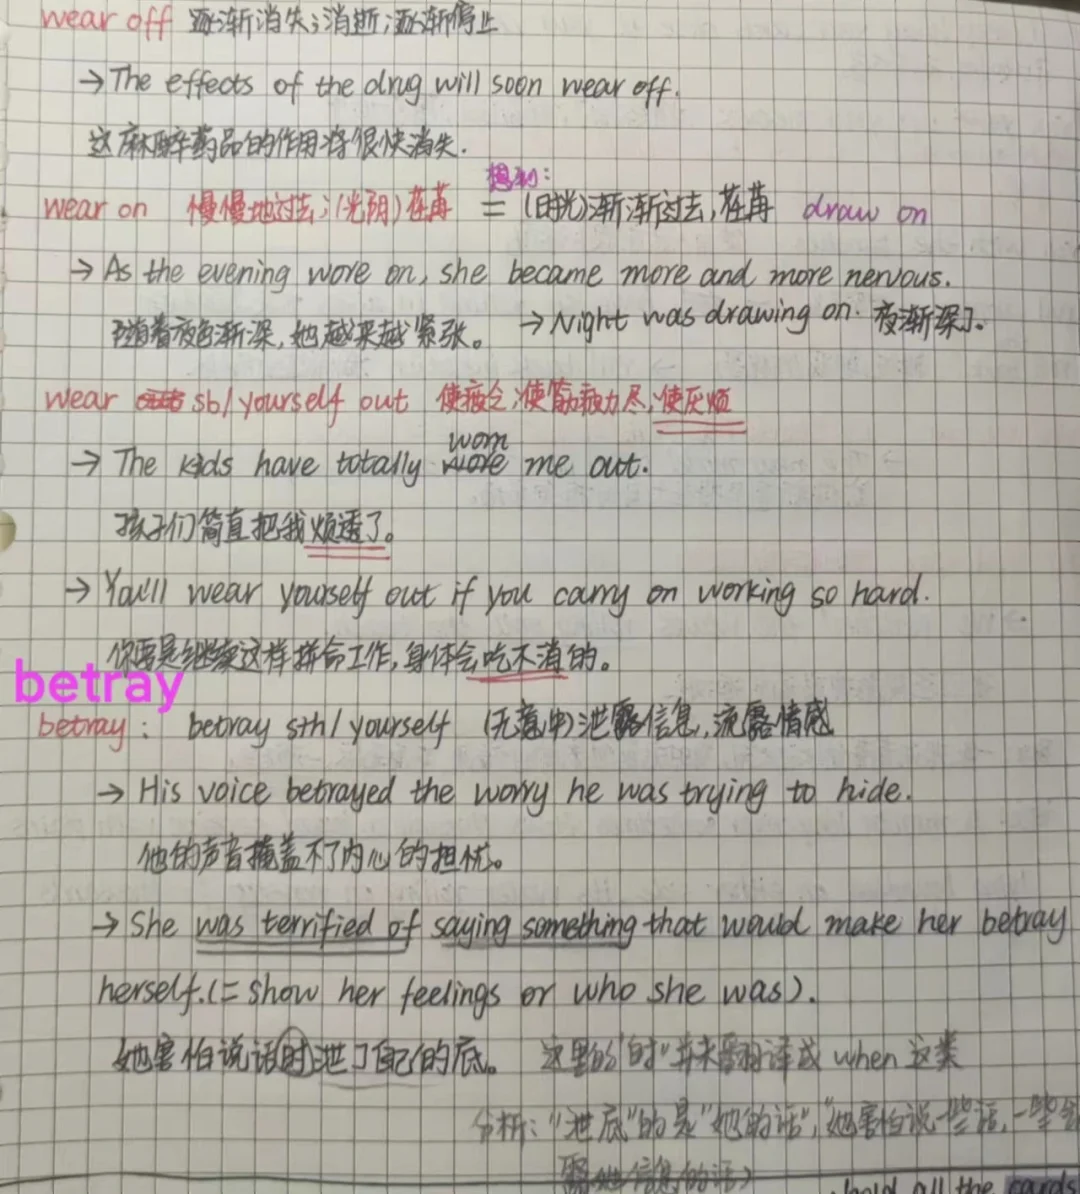 wear off 逐渐消失;消逝;逐渐停止
→ The effects of the drug will soon wear off.
这麻醉药品的作用将很快消失.
想到:
wear on 慢慢地过去;(光阴)荏苒 = (时光)渐渐过去,荏苒 draw on
→ As the evening wore on, she became more and more nervous.
随着夜色渐深,她越来越紧张。 → Night was drawing on. 夜渐深了。
wear sb/yourself out 使疲乏;使筋疲力尽;使厌烦
worn
→ The kids have totally wore me out.
孩子们简直把我烦透了。
→ You'll wear yourself out if you carry on working so hard.
你要是继续这样拼命工作,身体会吃不消的。
betray
betray: betray sth/yourself (无意中)泄露信息,流露情感
→ His voice betrayed the worry he was trying to hide.
他的声音掩盖不了内心的担忧。
→ She was terrified of saying something that would make her betray
herself.(= show her feelings or who she was).
她害怕说话时泄了自己的底。 这里的"时"并未翻译成 when 这类
分析:"泄底"的是"她的话","她害怕说一些话,一些会
露她信息的话)
hold all the cards